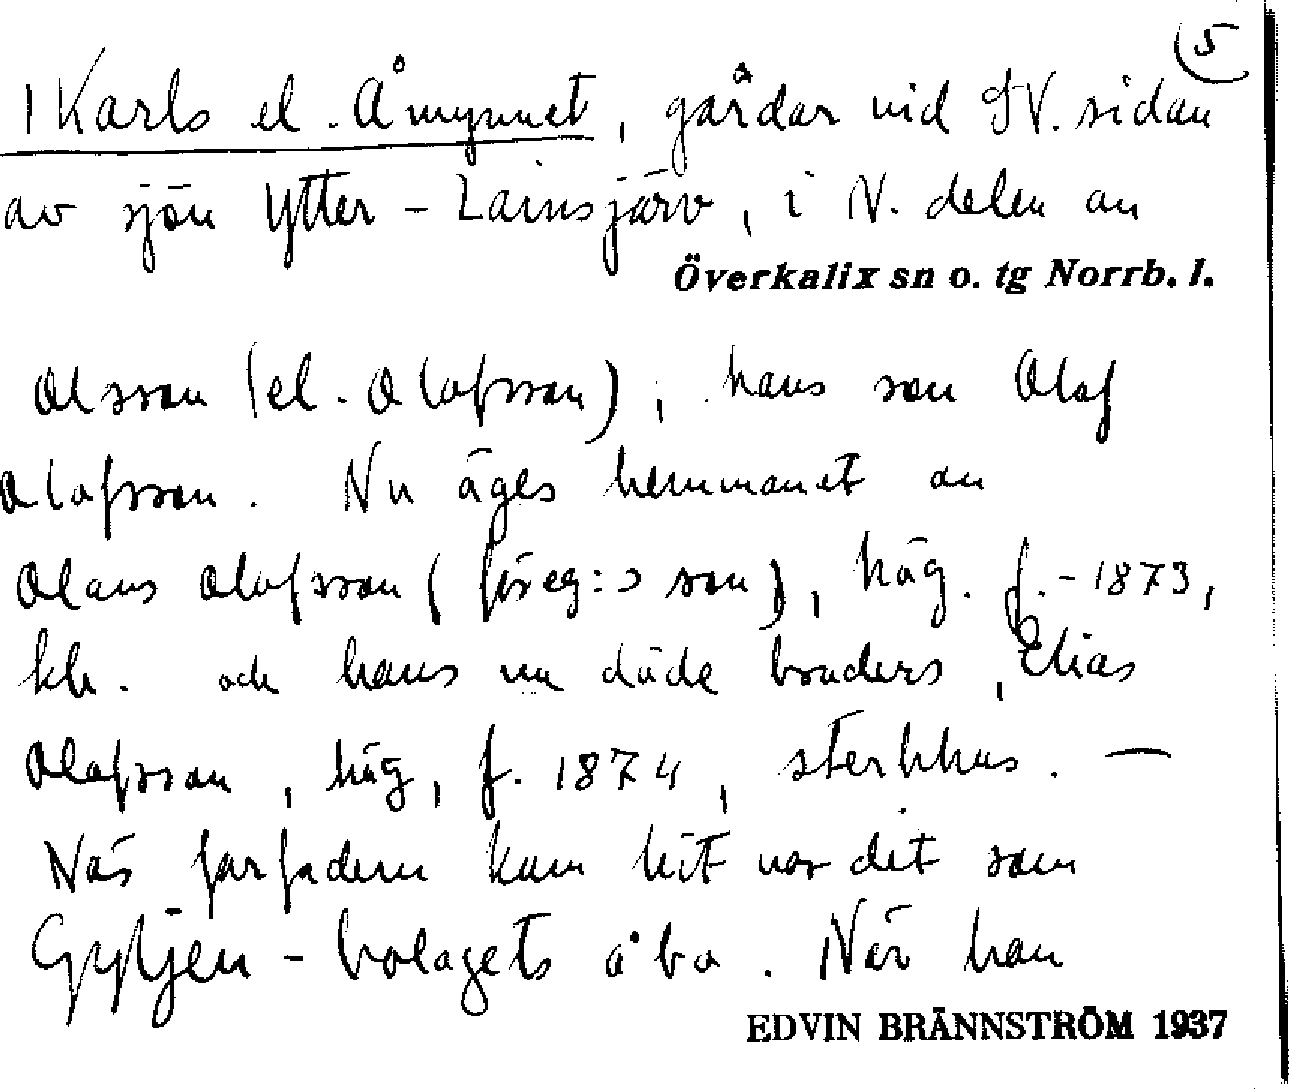 5
1 Karls el. Åmynnet, gårdar vid SV. sidan
av sjön Ytter-Lainsjärv, i N. delen av
Överkalix sn o. tg Norrb. l.
Olsson (el. Olofsson), hans son Olof
Olofsson. Nu äges hemmanet av
Olaus Olofsson (föreg:s son), häg. f. - 1873,
kh. och hans nu döde broders, Elias
Olofsson, häg, f. 1874, sterbhus. —
När farfadern kom hit var det som
Gyljen-bolagets åbo. När han
EDVIN BRÄNNSTRÖM 1937